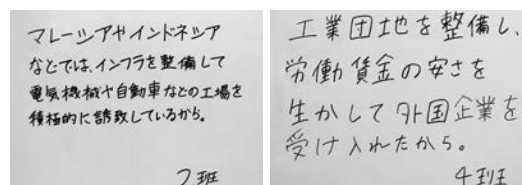 マレーシアやインドネシア
などでは、インフラを整備して
電気機械や自動車などの工場を
積極的に誘致しているから。
2班
工業団地を整備し、
労働賃金の安さを
生かして外国企業を
受け入れたから。
4班